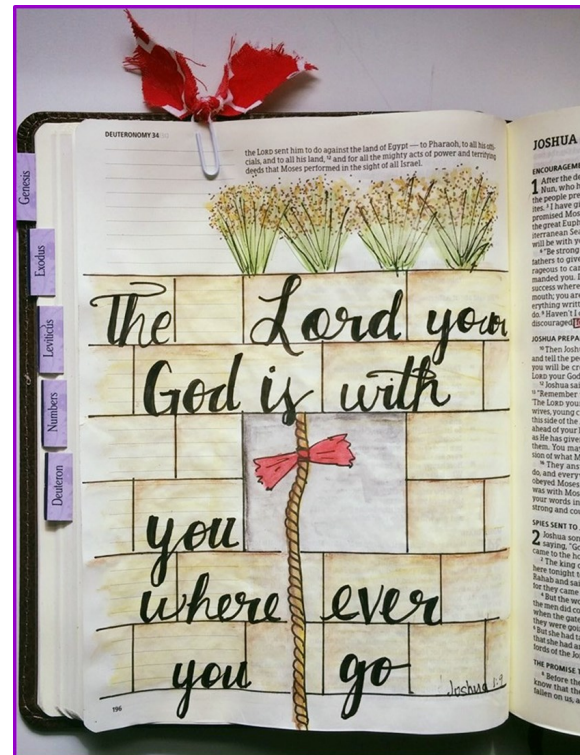 DEUTERONOMY 34
the LORD sent him to do against the land of Egypt — to Pharaoh, to all his offi-
cials, and to all his land, 12 and for all the mighty acts of power and terrifying
deeds that Moses performed in the sight of all Israel.
Genesis
Exodus
Leviticus
Numbers
Deuteron
The Lord your
God is with
you
where ever
you go
Joshua 1:9
196
JOSHUA
ENCOURAGEME
1 After the de
Nun, who h
the people pre
ites. 3 I have gi
promised Mos
the great Euph
iterranean Sea
will be with y
6 "Be strong
fathers to give
rageous to car
manded you. I
success where
mouth; you ar
erything writt
do. 9 Haven't I c
discouraged
JOSHUA PREPA
10 Then Joshu
and tell the pe
you will be cr
LORD your God
12 Joshua sai
13 "Remember
The LORD you
wives, young c
this side of the
ahead of your
as He has give
them. You may
sion of what M
16 They ans
do, and every
obeyed Moses
was with Mos
your words in
strong and co
SPIES SENT TO
2 Joshua son
saying, "Go
came to the ho
2 The king o
here tonight t
Rahab and sai
for they came
4 But the wo
the men did co
when the gate
they were goi
6 But she had t
that she had a
fords of the Jo
THE PROMISE T
8 Before the
know that the
fallen on us, a